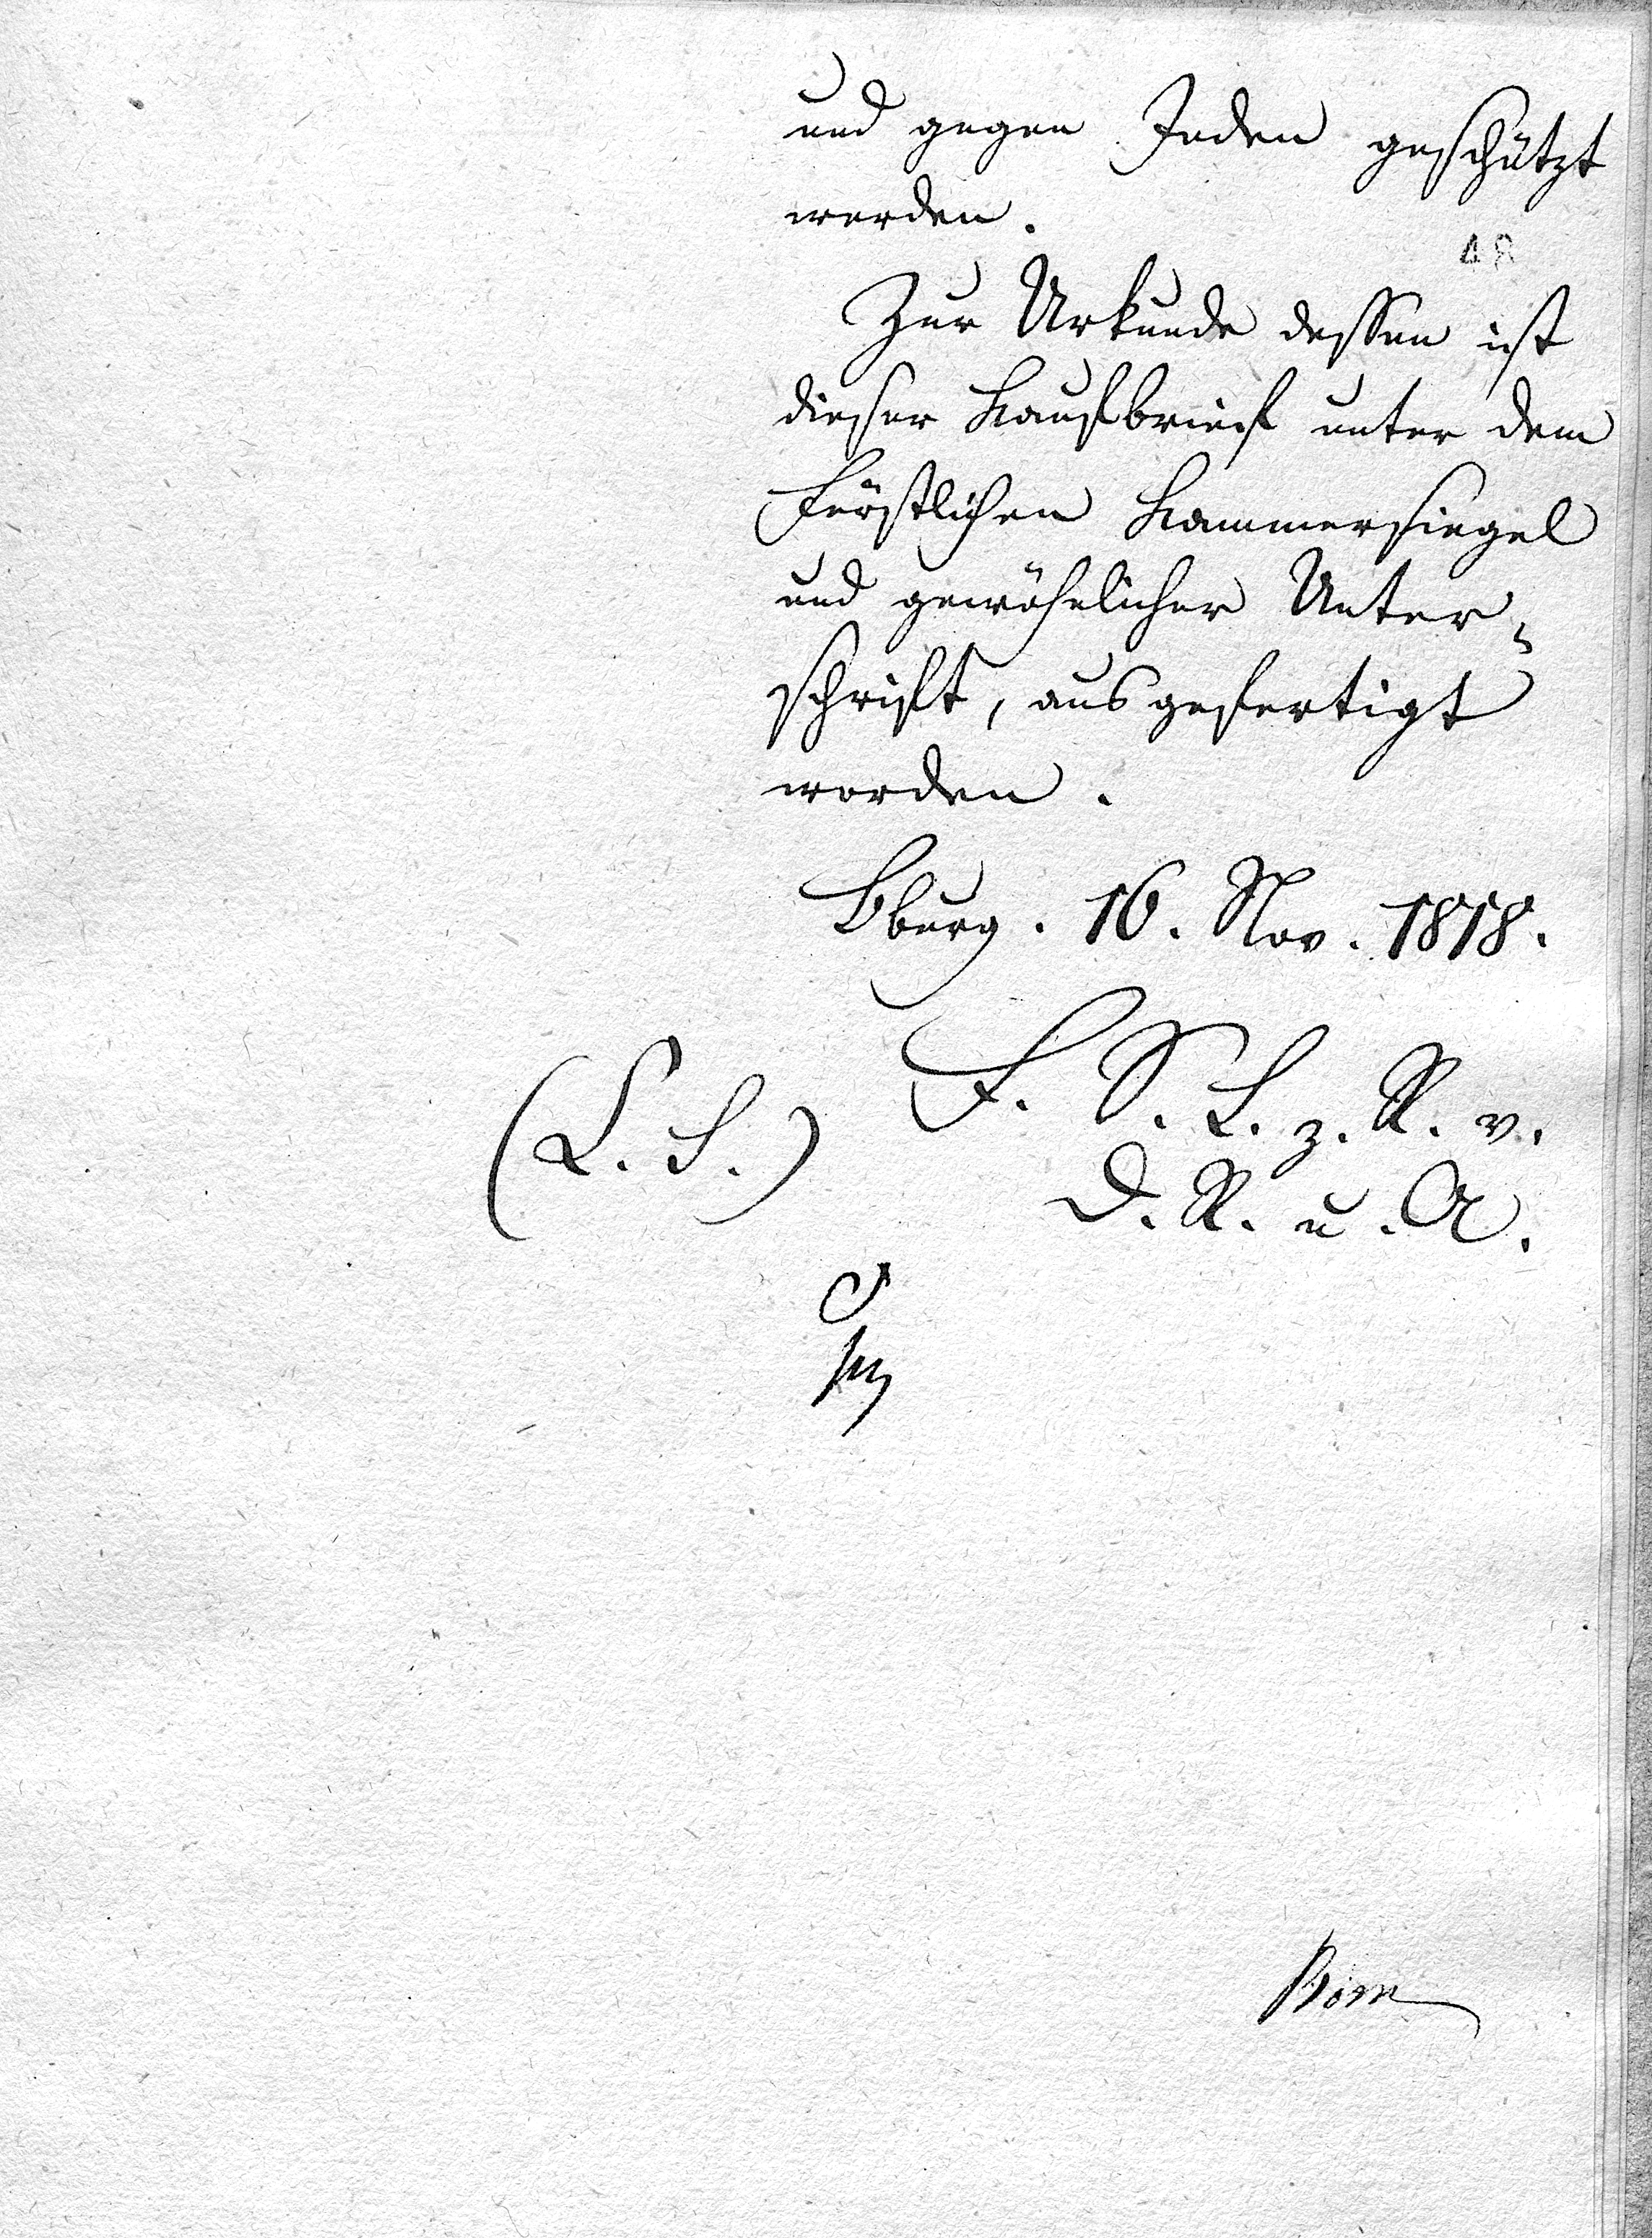 und gegen Jeden geschützt
werden.
48
Zur Urkunde dessen ist
dieser Kaufbrief unter dem
Fürstlichen Kammersiegel
und gewöhnlicher Unter-
schrift, ausgefertigt
worden.
Bburg. 16. Nov. 1818.
F. S. L. z. R. v.
(L. S.)
D. R. u. A.